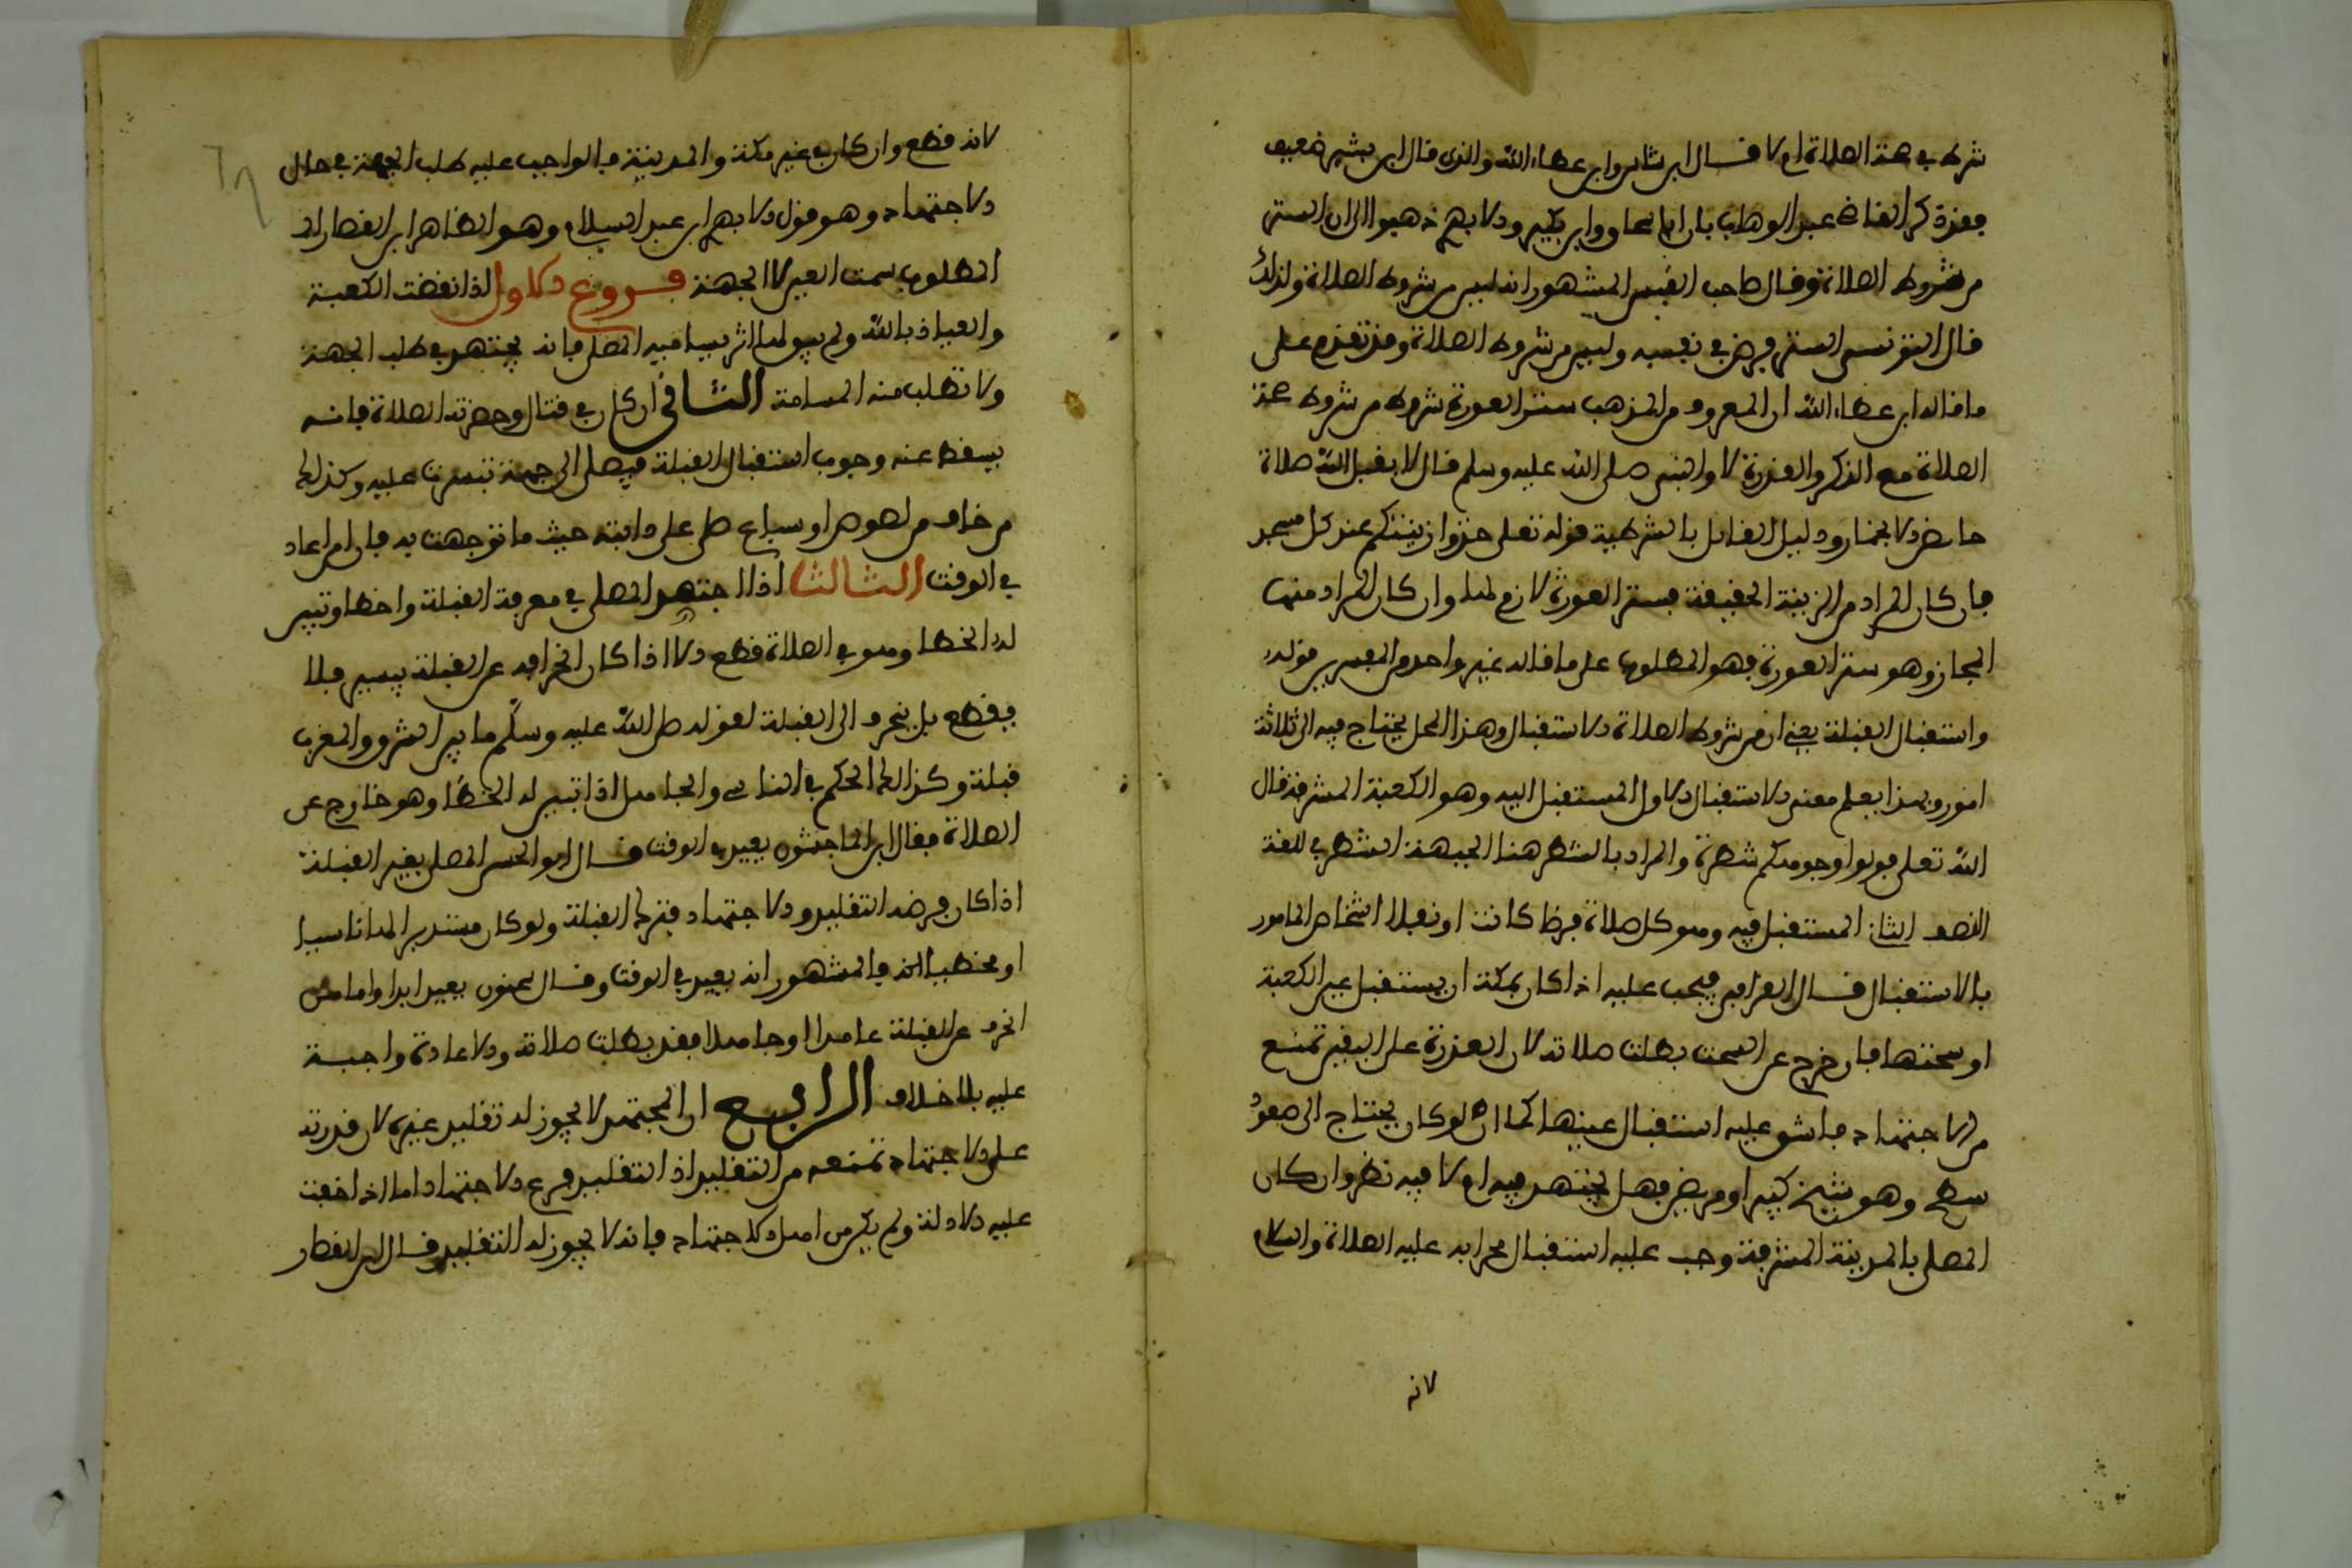 شرط في صحة الصلاة ام لا قال ابن شاس وابن عطاء الله والذي قال ابن بشير ضعيف
فقد ذكر القاضي عبد الوهاب بان ابا اسحاق وابن بكير والابهري ذهبوا الى ان الستر
من شروط الصلاة وقال صاحب القبس المشهور انه ليس من شروط الصلاة ولذلك
قال التونسي الستر فرض في نفسه وليس من شروط الصلاة وقد تقدم على
ما قاله ابن عطاء الله ان المعروف من المذهب ستر العورة شرط من شروط صحة
الصلاة مع الذكر والقدرة لان النبي صلى الله عليه وسلم قال لا يقبل الله صلاة
حائض الا بخمار ودليل القائل بالشرطية قوله تعلى خذوا زينتكم عند كل مسجد
فان كان المراد من الزينة الحقيقة فستر العورة لازم لها وان كان المراد منها
المجاز وهو ستر العورة فهو المطلوب على ما قاله غير واحد من المفسرين قوله
واستقبال القبلة يعني ان من شروط الصلاة الاستقبال وهذا المحل يحتاج فيه الى ثلاثة
امور وبهذا يعلم معنى الاستقبال الاول المستقبل اليه وهو الكعبة المشرفة قال
الله تعلى فولوا وجوهكم شطره والمراد بالشطر هنا الجهة الشطر في اللغة
النصف الثاني المستقبل فيه وهو كل صلاة فرضا كانت او نفلا الثالث المامور
بالاستقبال قال القرافي فيجب عليه اذا كان بمكة ان يستقبل عين الكعبة
او سمتها فان خرج عن السمت بطلت صلاته لان القدرة على اليقين تمنع
من الاجتهاد فان شق عليه استقبال عينها كما ان لو كان يحتاج الى صعود
سطح وهو شيخ كبير او مريض فهل يجتهد فيه ام لا فيه نظر وان كان
المصلي بالمدينة المشرفة وجب عليه استقبال محرابه عليه الصلاة والسلام
لانه
لانه قطع وان كان في غير مكة والمدينة فالواجب عليه طلب الجهة في حال
الاجتهاد وهو قول الابهري ابن عبد السلام وهو الظاهر ابن القصار ان
المطلوب سمت العين لا الجهة فروع الاول اذا نقضت الكعبة
والعياذ بالله ولم يبق لها اثر بينا فيه المصلي فانه يجتهد في طلب الجهة
ولا تطلب منه المسامتة الثاني ان كان في قتال وحضرته الصلاة فانه
يسقط عنه وجوب استقبال القبلة فيصلي الى جهة تيسرت عليه وكذلك
من خاف من لصوص او سباع صلى على دابته حيث ما توجهت به فان امن اعاد
في الوقت الثالث اذا اجتهد المصلي في معرفة القبلة واخطا وتبين
له الخطا وهو في الصلاة قطع الا اذا كان انحرافه عن القبلة يسير فلا
يقطع بل ينحرف الى القبلة لقوله صلى الله عليه وسلم ما بين المشرق والمغرب
قبلة وكذلك الحكم في الناسي والجاهل اذا تبين له الخطا وهو خارج عن
الصلاة فقال ابن الماجشون يعيد في الوقت قال ابو الحسن المصلي بغير القبلة
اذا كان فرضه التقليد والاجتهاد فترك القبلة ولو كان مستدبرا لها ناسيا
او مخطيا فالمشهور انه يعيد في الوقت وقال سحنون يعيد ابدا واما من
انحرف عن القبلة عامدا او جاهلا فقد بطلت صلاته والاعادة واجبة
عليه بلا خلاف الرابع ان المجتهد لا يجوز له تقليد غيره لان قدرته
على الاجتهاد تمنعه من التقليد اذ التقليد فرع الاجتهاد اما اذا خفيت
عليه الادلة ولم يكن من اهل الاجتهاد فانه لا يجوز له التقليد وقال ابن القصار